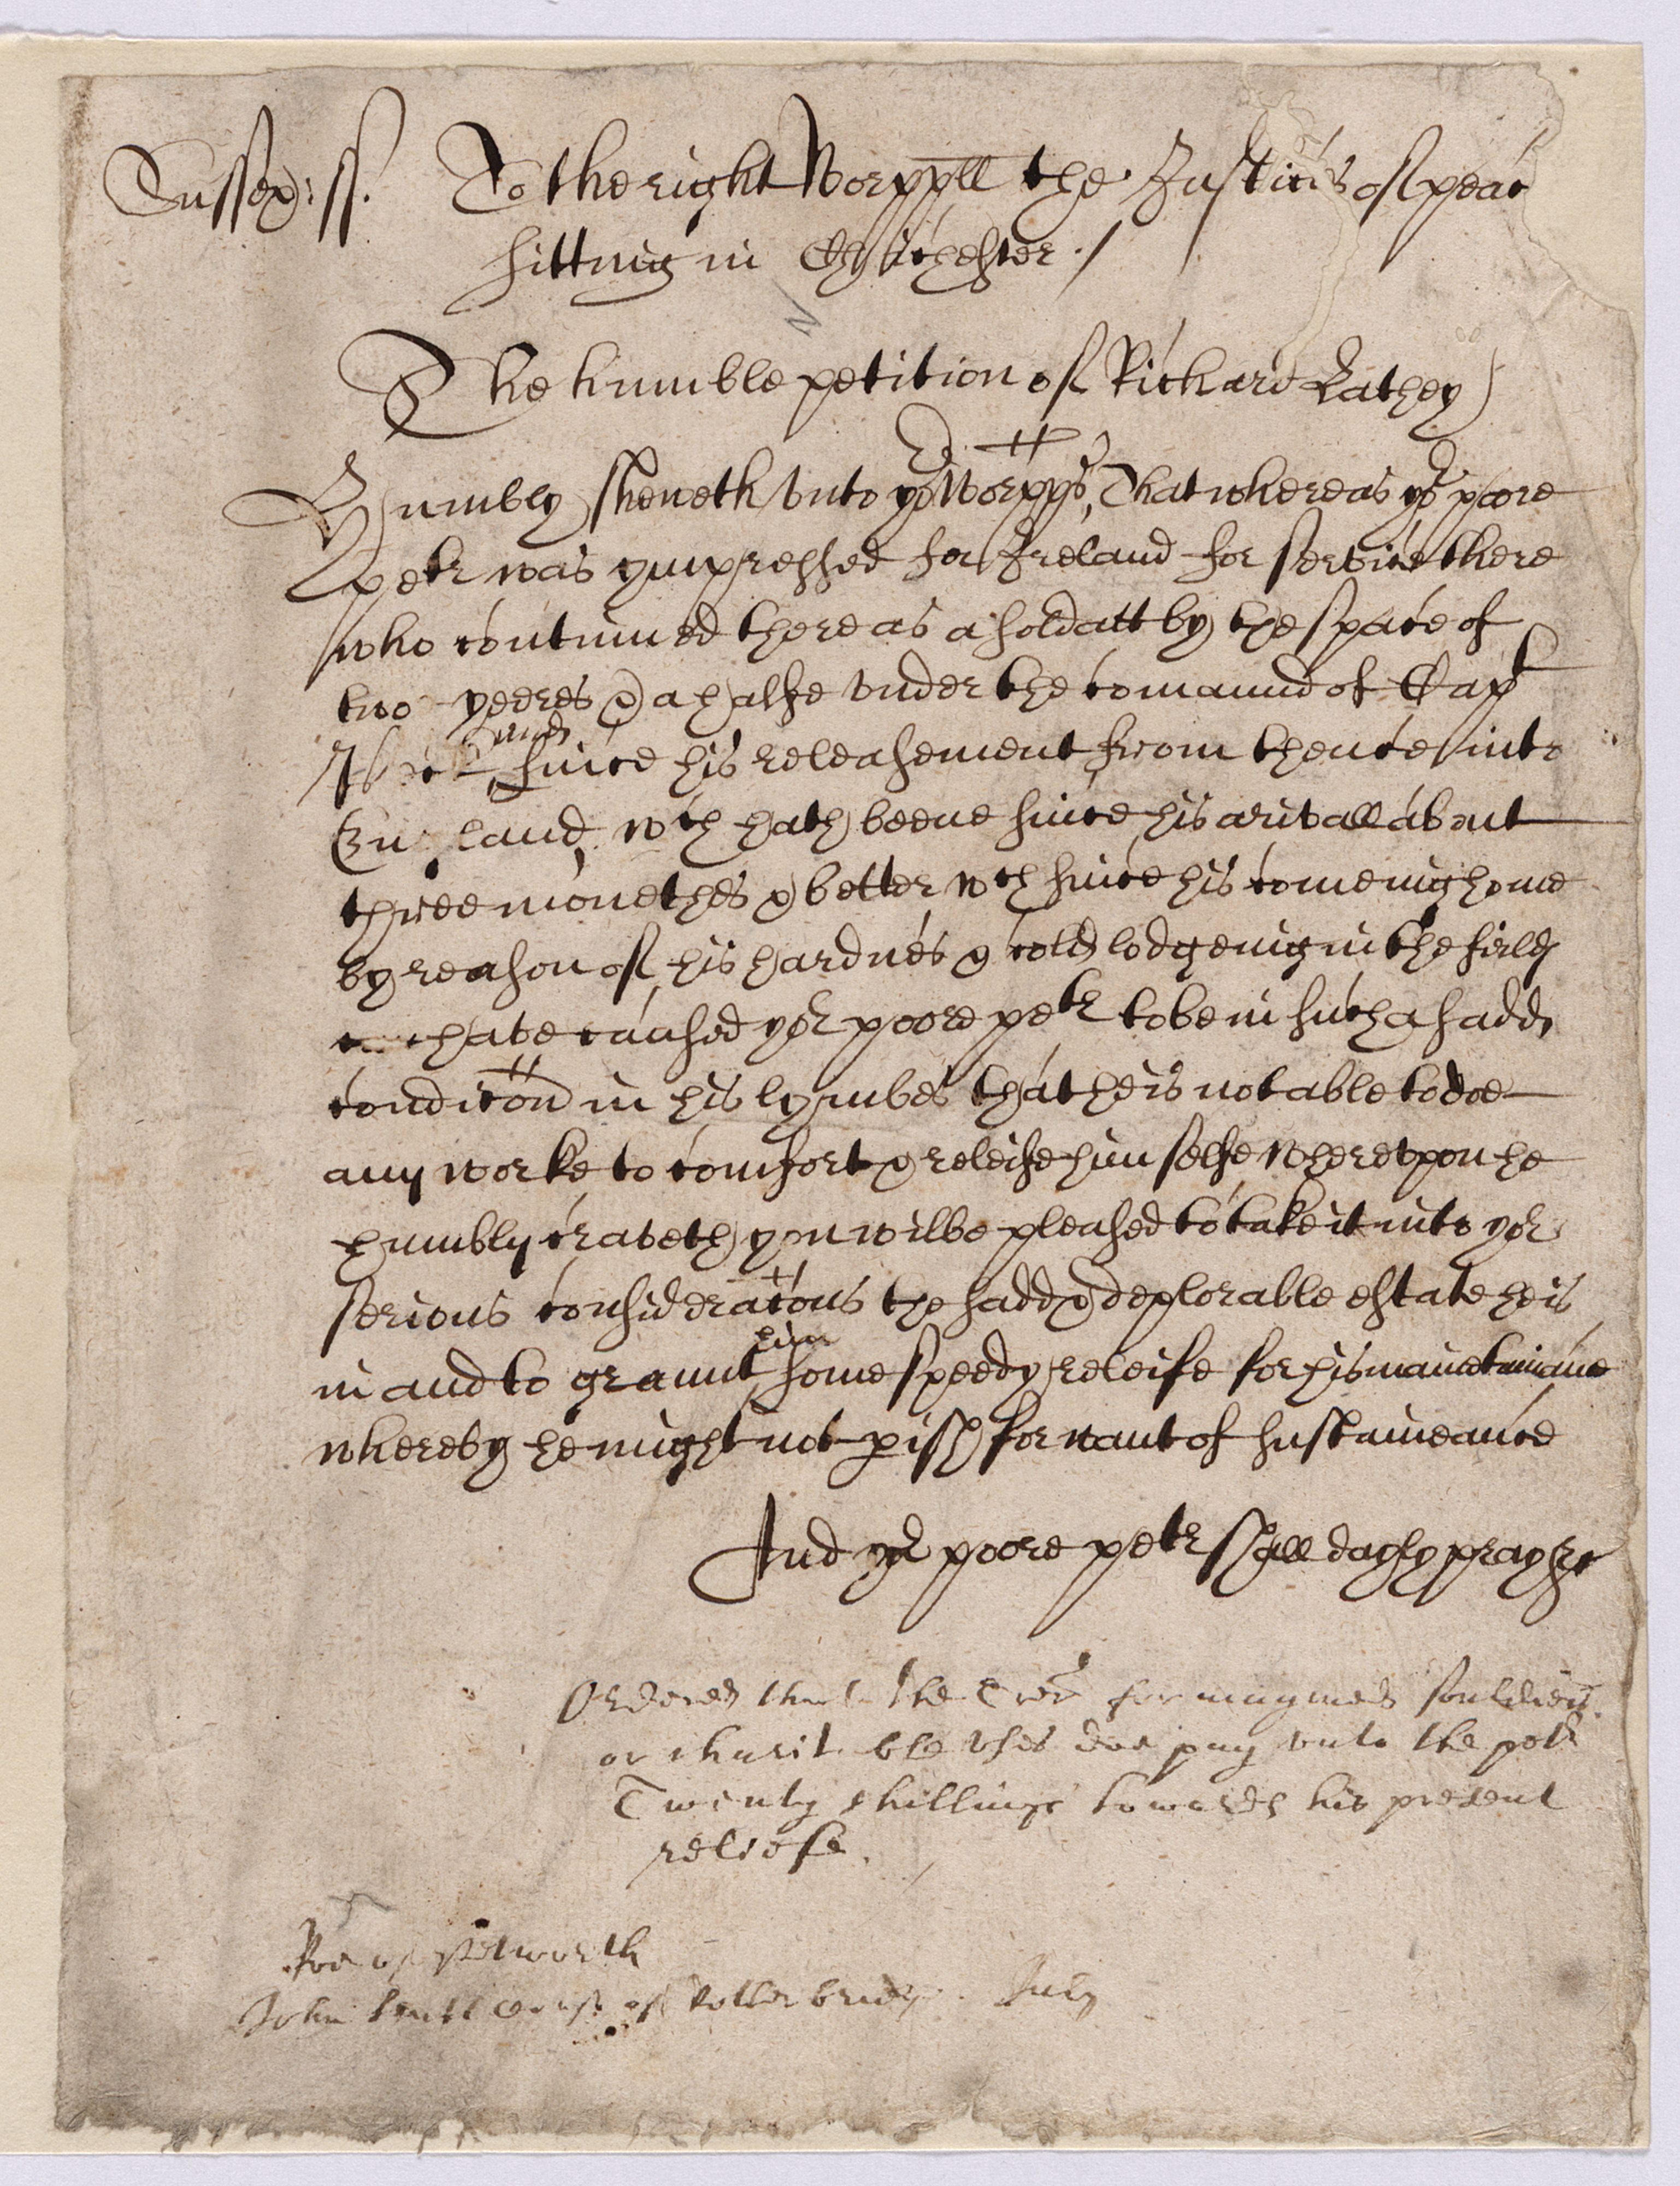 Sussex: ss. To the right Worppll the Justices of peac
sitting in Chichester ./
The humble petition of Richard Lathey
Humbly sheweth unto yor Worpps, That whereas yor poore
petr was ympressed for Ireland for service there
who continued there as a soldatt by the space of
two yeeres & a halfe under the comaund of Capt
and since his releasement from thence into
England, wch hath beene since his arivall about
three monethes & better wch since his comeing home
by reason of his hardnes & cold lodgeing in the field
have caused yor poore petr to be in such a sadd
condicon in his lymbes that he is not able to doe
any worke to comfort & releife him selfe whereupon he
humbly craveth you wilbe pleased to take it into yor
serious consideracons the sadd & deplorable estate he is
in and to graunt him some speedy releife for his maintenance
whereby he might not pish for want of sustaineance
And yor poore petr shall dayly pray &c
Ordered that the Trer for maymed souldiers
or charitable uses doe pay unto the petr
Twenty shillings towardes his present
reliefe.
of petworth
John of Rotherbridge. July